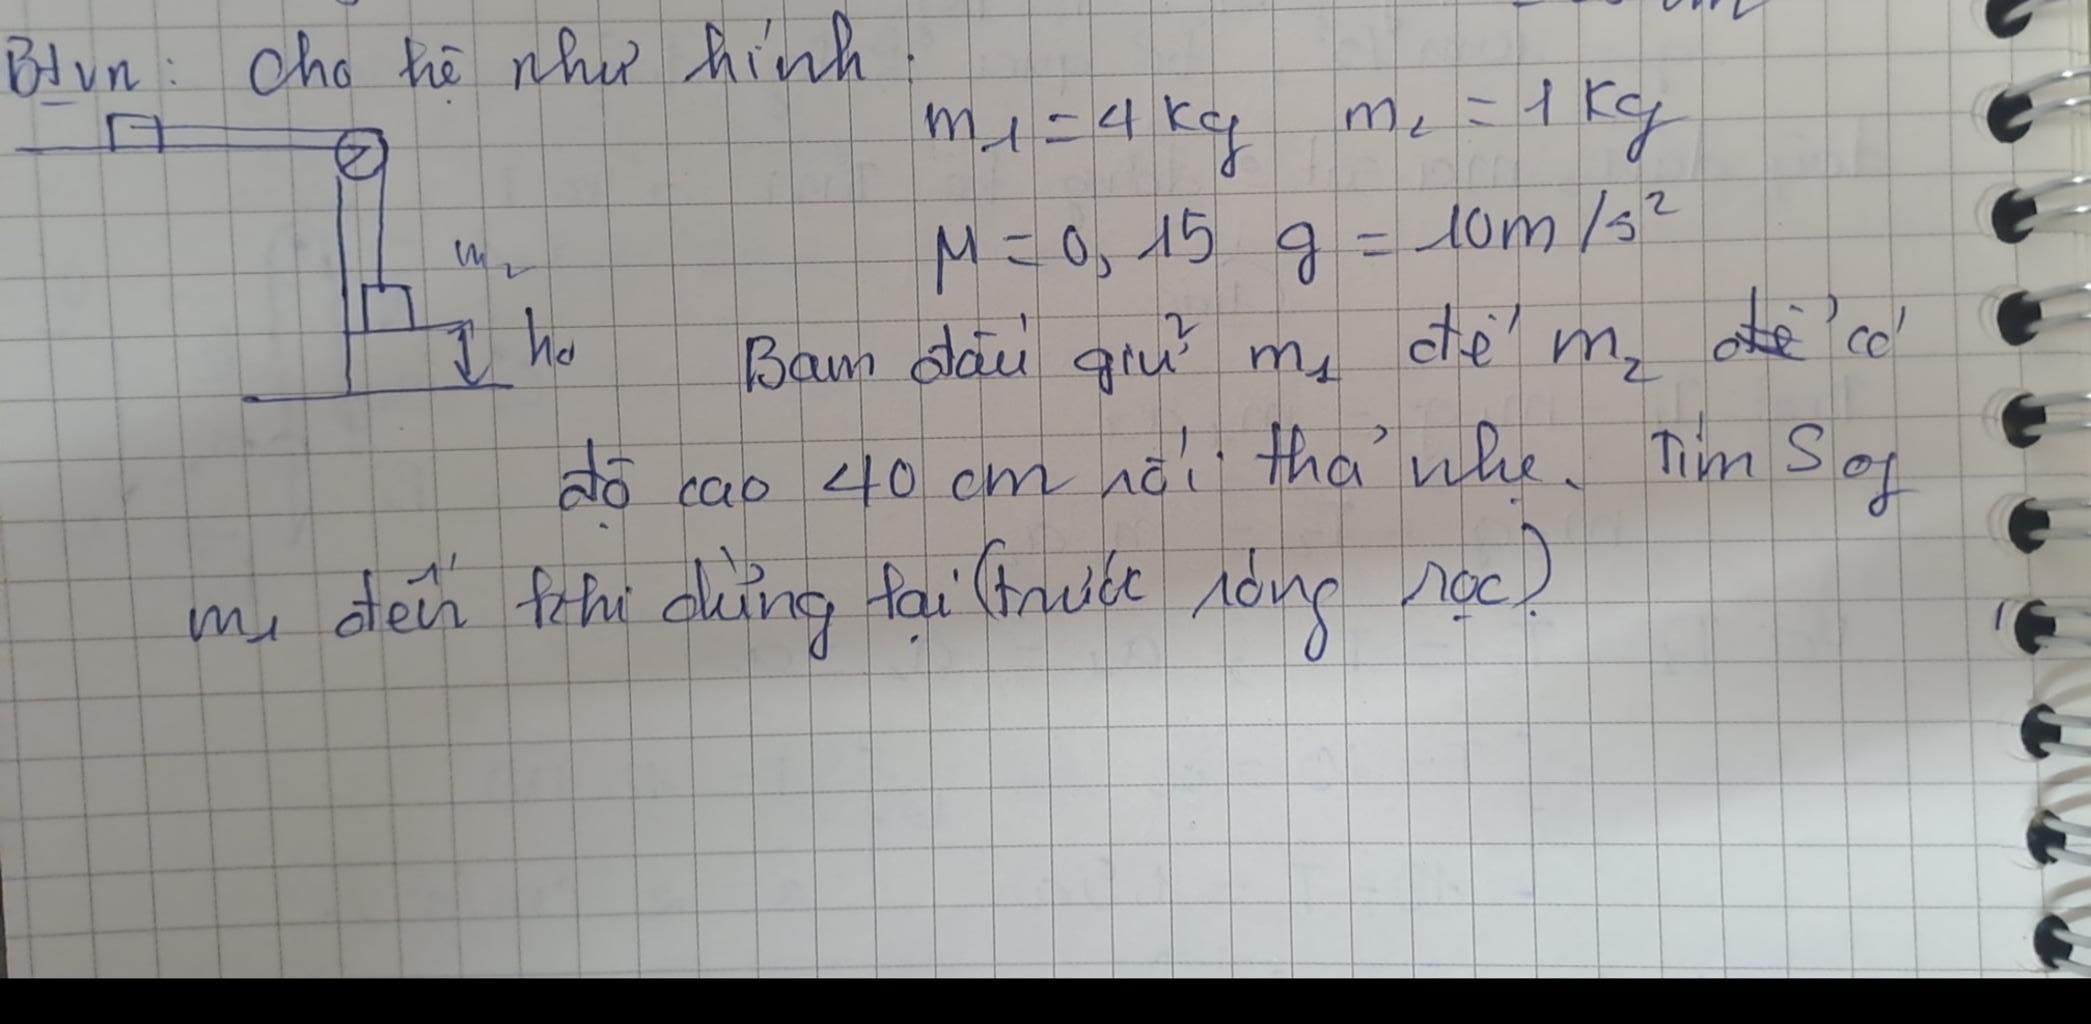 Btvn: Cho hệ như hình:
m₁ = 4 kg m₂ = 1 kg
μ = 0,15 g = 10m/s²
m₂
h₀
Bam đầu giữ m₁ để m₂ có
độ cao 40 cm rồi thả nhẹ. Tìm S of
m₁ đến khi dừng lại (trước ròng rọc)